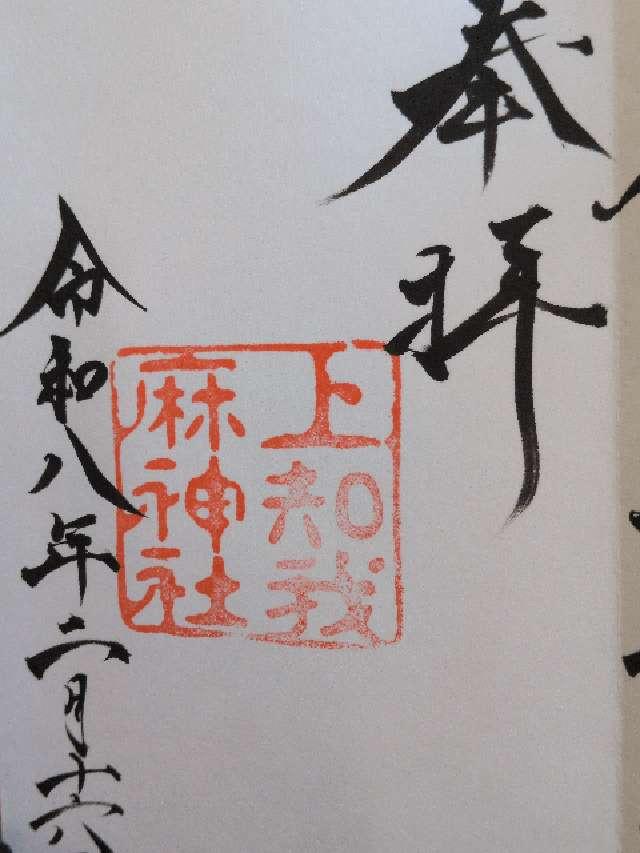 奉拝
上知我
麻神社
令和八年二月十六